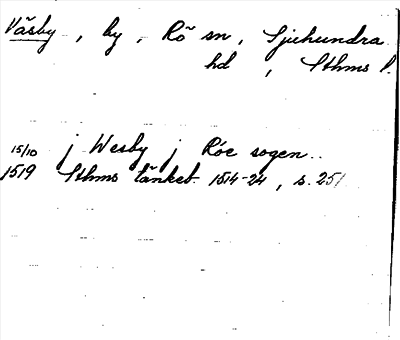 Väsby , by , Rö sn , Sjuhundra
hd , Sthms l.
15/10 j Wesby j Röe sogen..
1519 Sthms tänkeb. 1514-24 , s. 251